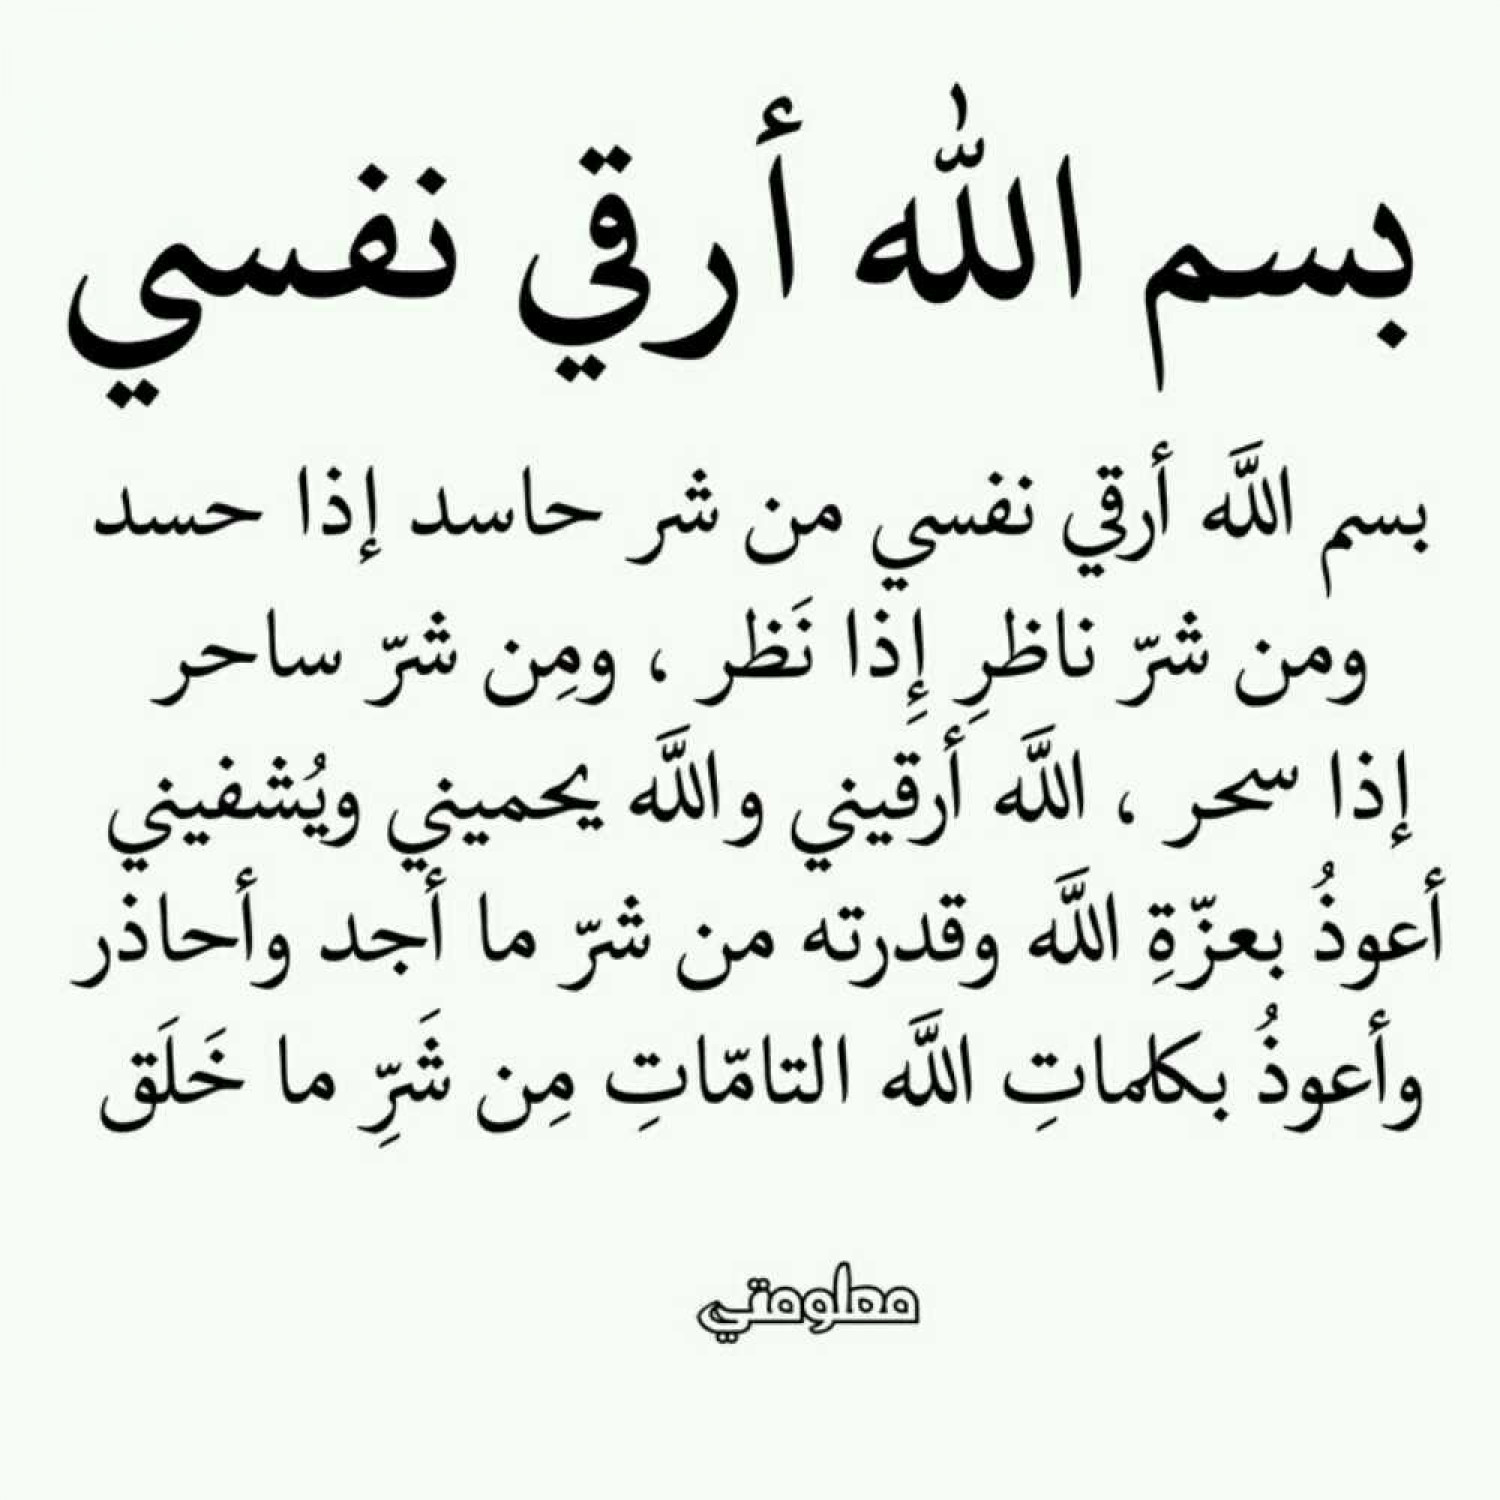 بسم اللّٰه أرقي نفسي
بسم اللَّه أرقي نفسي من شر حاسد إذا حسد
ومن شرّ ناظرِ إِذا نَظر ، ومِن شرّ ساحر
إذا سحر ، اللَّه أرقيني واللَّه يحميني ويُشفيني
أعوذُ بعزّةِ اللَّه وقدرته من شرّ ما أجد وأحاذر
وأعوذُ بكلماتِ اللَّه التامّاتِ مِن شَرِّ ما خَلَق
معلومتي